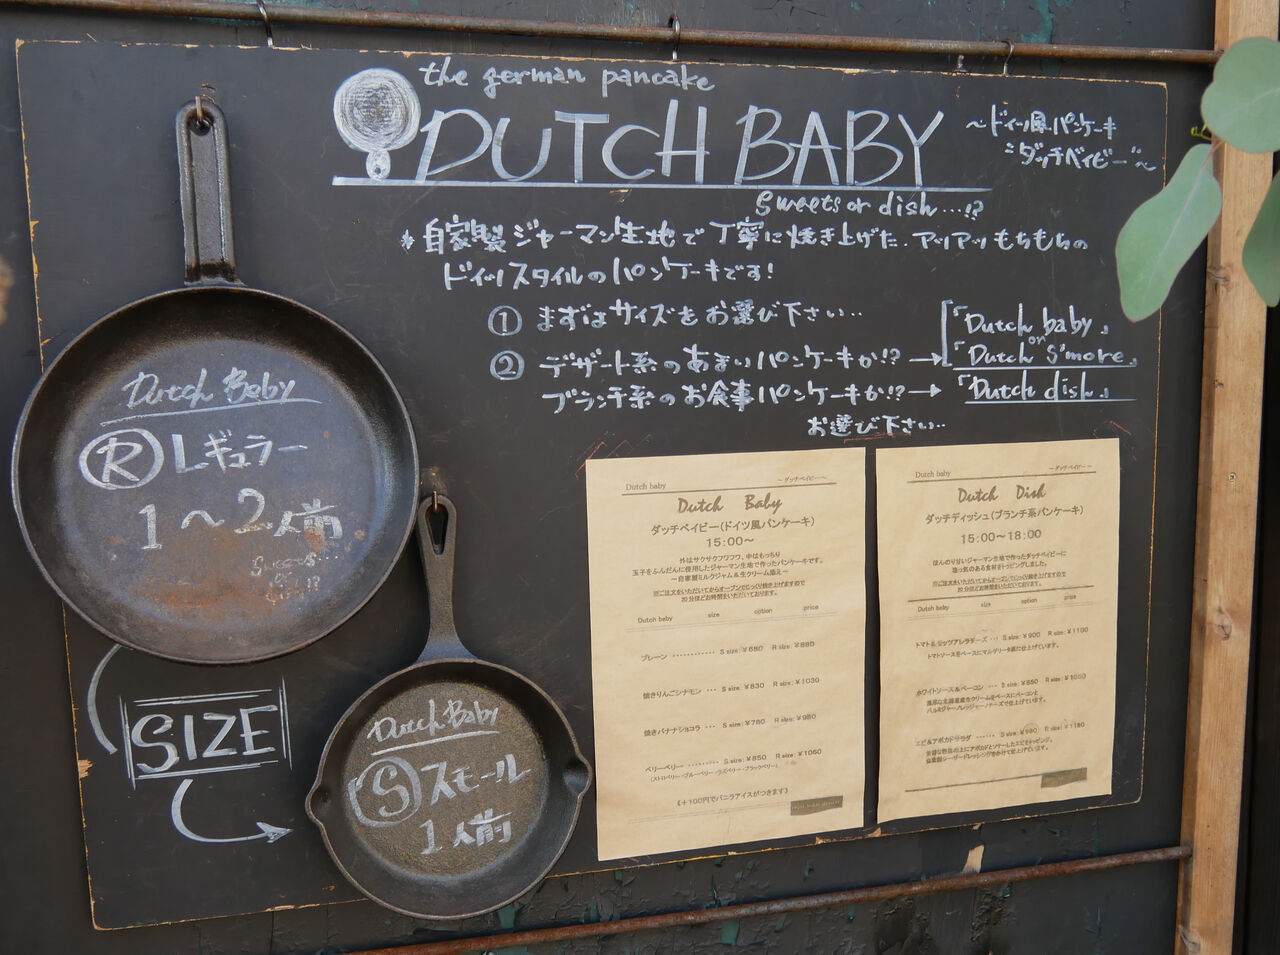 the german pancake
DUTCH BABY
〜ドイツ風パンケーキ
"ダッチベイビー"〜
Sweets or dish...!?
*自家製ジャーマン生地で丁寧に焼き上げた、アツアツもちもちの
ドイツスタイルのパンケーキです!
① まずはサイズをお選び下さい..
② デザート系のあまいパンケーキか!?→
「Dutch baby」
or
「Dutch S'more」
ブランチ系のお食事パンケーキか!?→「Dutch dish」
お選び下さい..
Dutch Baby
R レギュラー
1〜2人前
SIZE
Dutch Baby
S スモール
1人前
Dutch baby 〜ダッチベイビー〜
Dutch Baby
ダッチベイビー(ドイツ風パンケーキ)
15:00〜
外はサクサクフワフワ、中はもっちり
玉子をふんだんに使用したジャーマン生地で作ったパンケーキです。
〜自家製ミルクジャム&生クリーム添え〜
※ご注文をいただいてからオーブンでじっくり焼き上げますので
20分ほどお時間をいただいております。
Dutch baby size option price
プレーン ………… S size:¥680 R size:¥880
焼きりんごシナモン … S size:¥830 R size:¥1030
焼きバナナショコラ … S size:¥780 R size:¥980
ベリーベリー ……… S size:¥850 R size:¥1050
(ストロベリー・ブルーベリー・ラズベリー・ブラックベリー)
《+100円でバニラアイスがつきます》
Dutch baby 〜ダッチベイビー〜
Dutch Dish
ダッチディッシュ(ブランチ系パンケーキ)
15:00〜18:00
ほんのり甘いジャーマン生地で作ったダッチベイビーに
塩っ気のある食材をトッピングしました。
※ご注文をいただいてからオーブンでじっくり焼き上げますので
20分ほどお時間をいただいております。
Dutch baby size option price
トマト&モッツアレラチーズ … S size:¥900 R size:¥1100
トマトソースをベースにマルゲリータ風に仕上げています。
ホワイトソース&ベーコン … S size:¥850 R size:¥1050
エビ&アボカドサラダ … S size:¥980 R size:¥1180